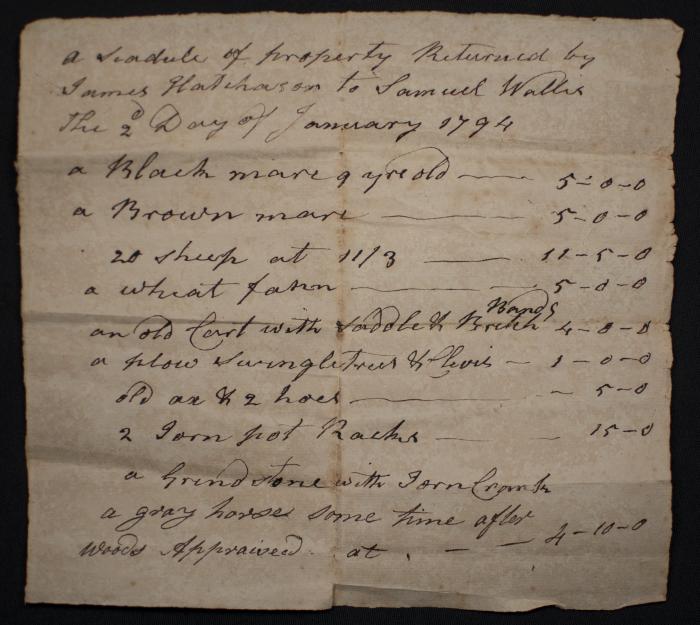 a scadule of property Returned by
James Hatchason to Samuel Wallis
the 2d Day of January 1794
a Black mare 9 yrs old — 5-0-0
a Brown mare — 5-0-0
20 sheep at 11/3 — 11-5-0
a wheat fann — 5-0-0
Bands
an old Cart with Saddle & Britch 4-0-0
a plow Swingletrees & Clevis — 1-0-0
old ax & 2 hoes — 5-0
2 Iorn pot Racks — 15-0
a Grindstone with Iorn Crank
a gray horses some time after
woods Appraised at . — — 4-10-0